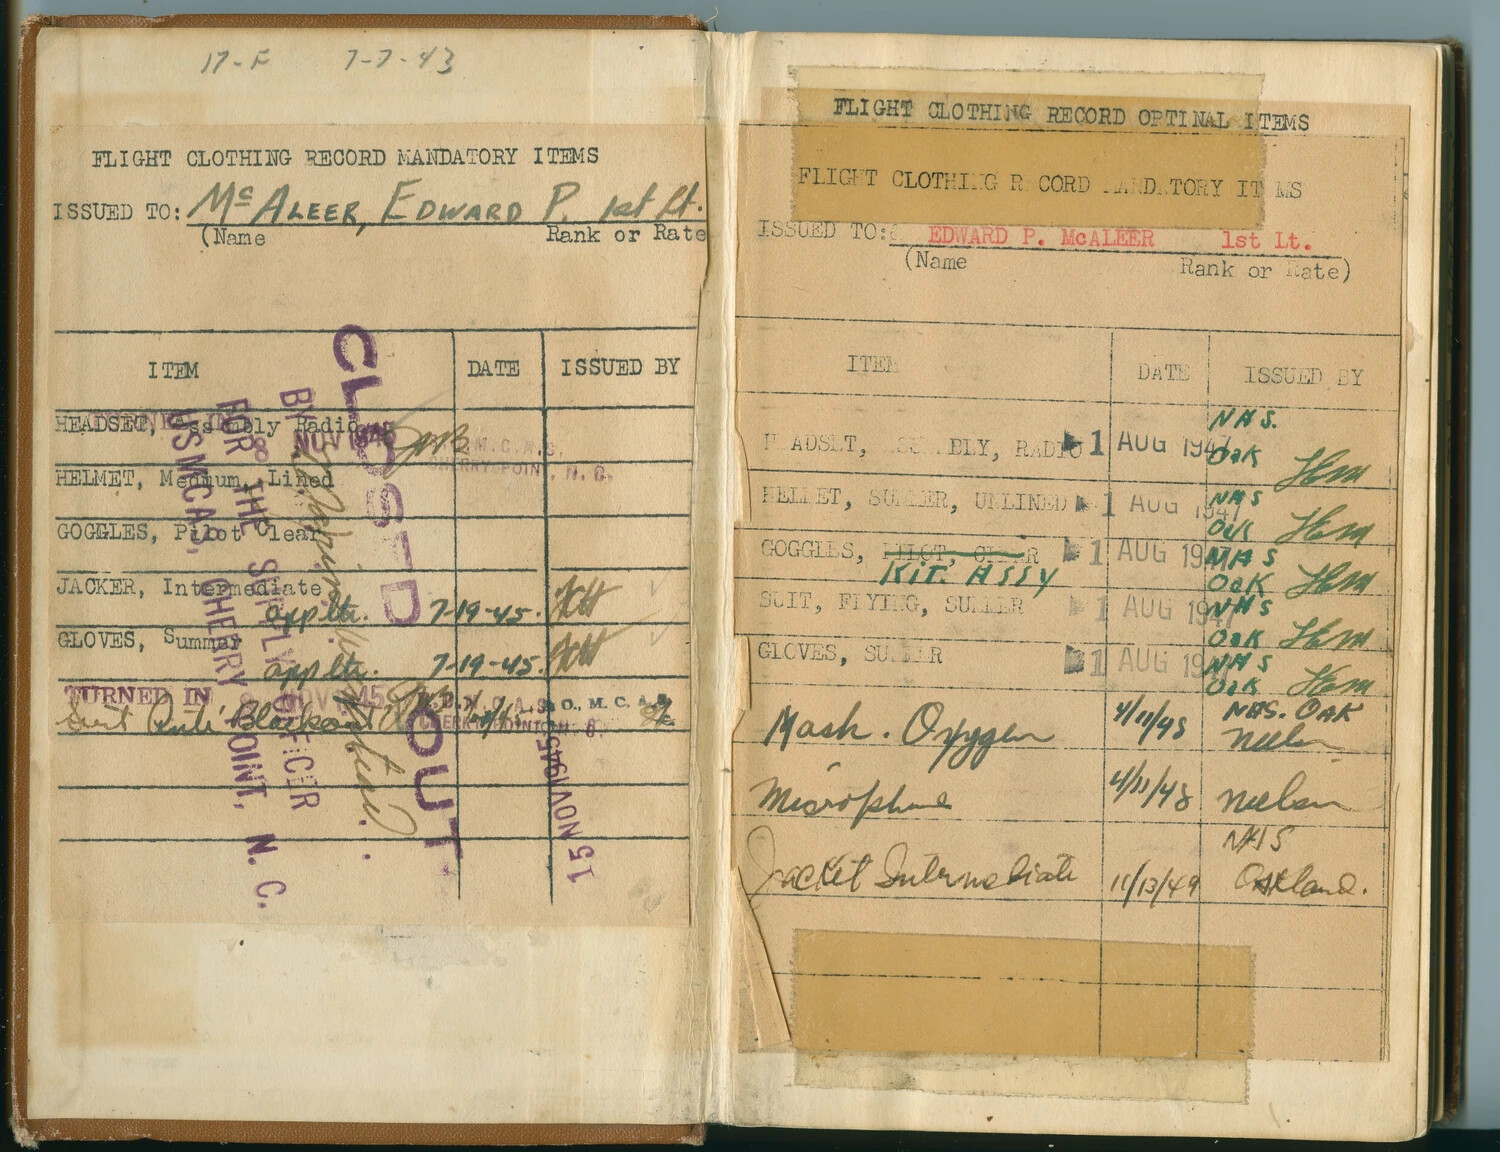 17-F 7-7-43
FLIGHT CLOTHING RECORD MANDATORY ITEMS
ISSUED TO: McALEER, EDWARD P. 1st Lt.
(Name Rank or Rate
ITEM DATE ISSUED BY
HEADSET, Assembly Radio
HELMET, Medium, Lined
GOGGLES, Pilot Clear
JACKER, Intermediate
app ltr. 7-19-45.
GLOVES, Summer
app ltr. 7-19-45.
TURNED IN 8 NOV 1945
Suit Anti Blackout
CLOSED OUT
BY
FOR THE SUPPLY OFFICER
USMCAS, CHERRY POINT, N. C.
NOV 1945
M.C.A.S.
CHERRY POINT, N. C.
15 NOV 1945
FLIGHT CLOTHING RECORD OPTINAL ITEMS
FLIGHT CLOTHING RECORD MANDATORY ITEMS
ISSUED TO: EDWARD P. McALEER 1st Lt.
(Name Rank or Rate)
ITEM DATE ISSUED BY
HEADSET, ASSEMBLY, RADIO 1 AUG 1947 NAS. Oak
HELMET, SUMMER, UNLINED 1 AUG 1947 NAS Oak
GOGGLES, PILOT, CLEAR 1 AUG 1947 NAS
KIT. ASSY Oak
SUIT, FLYING, SUMMER 1 AUG 1947 NAS Oak
GLOVES, SUMMER 1 AUG 1947 NAS Oak
Mask. Oxygen 4/11/48 NAS. OAK
Nielsen
Microphone 4/11/48 Nielsen
Jacket Intermediate 11/13/49 NAS
Oakland.